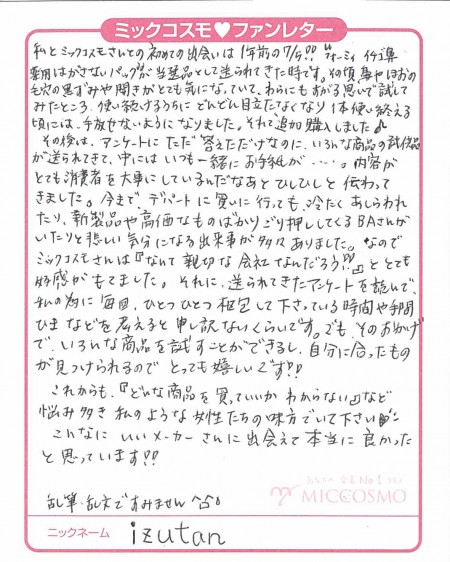 ミックコスモ♥ファンレター
私とミックコスモさんとの初めての出会いは1年前の7/5!! "フォーミィ イチゴ鼻
専用はがさないパック"が当選品として送られてきた時です。その頃、鼻やほおの
毛穴の黒ずみや開きがとても気になっていて、わらにもすがる思いで試して
みたところ、使い続けるうちにどんどん目立たなくなり1本使い終える
頃には、手放せないようになりました。それで追加購入しました♪
その後は、アンケートにただ答えただけなのに、いろんな商品の試供品
が送られてきて、中にはいつも一緒にお手紙が・・・・。内容が
とても消費者を大事にしているんだなあとひしひしと伝わって
きました。今まで、デパートに買いに行っても、冷たくあしらわれ
たり、新製品や高価なものばかりごり押ししてくるBAさんが
いたりと悲しい気分になる出来事が多々ありました。なので
ミックコスモさんは『なんて親切な会社なんだろう!?』ととても
好感がもてました。それに、送られてきたアンケートを読んで、
私の為に毎回、ひとつひとつ梱包して下さっている時間や手間
ひまなどを考えると申し訳ないくらいです。でも、そのおかげ
で、いろんな商品を試すことができるし、自分に合ったもの
が見つけられるのでとっても嬉しいです!!
これからも、『どんな商品を買っていいかわからない』など
悩み多き私のような女性たちの味方でいて下さい
こんなにいいメーカーさんに出会えて本当に良かった
と思っています!!
乱筆・乱文ですみません
あなたの 交差No1
MICCOSMO
ニックネーム izutan